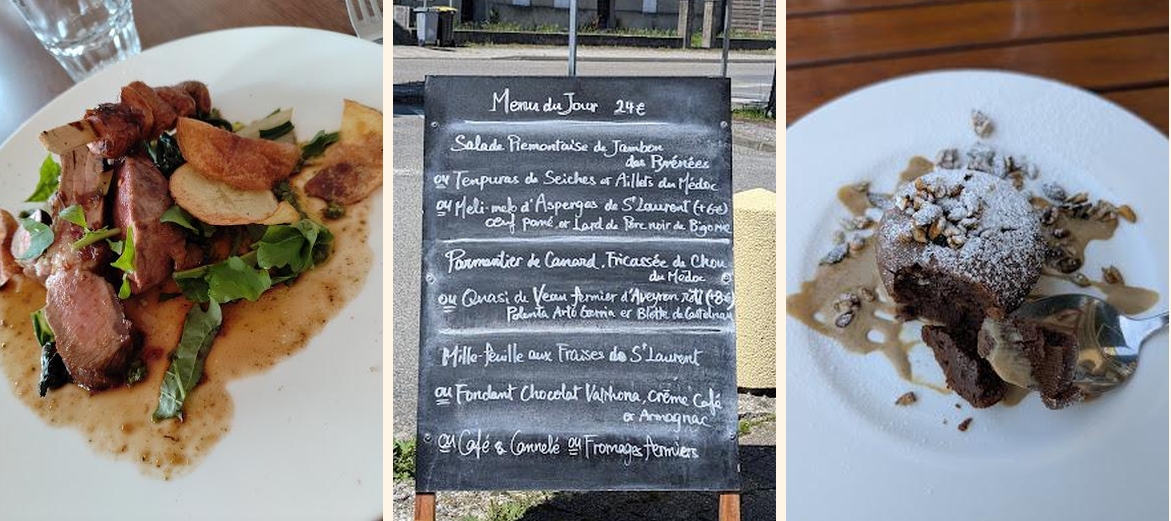 Menu du Jour 24€
Salade Piemontaise de Jambon
des Pyrénées
ou Tempuras de Seiches et Aillets du Médoc
ou Méli-melo d'Asperges de St Laurent (+6€)
œuf pané et Lard de Porc noir de Bigorre
Parmentier de Canard, Fricassée de Chou
du Médoc
ou Quasi de Veau fermier d'Aveyron rôti (+8€)
Polenta Arto Gorria et Blette de Castelnau
Mille-feuille aux Fraises de St Laurent
ou Fondant Chocolat Valrhona, crème Café
et Armagnac
ou Café & Cannelé ou Fromages fermiers